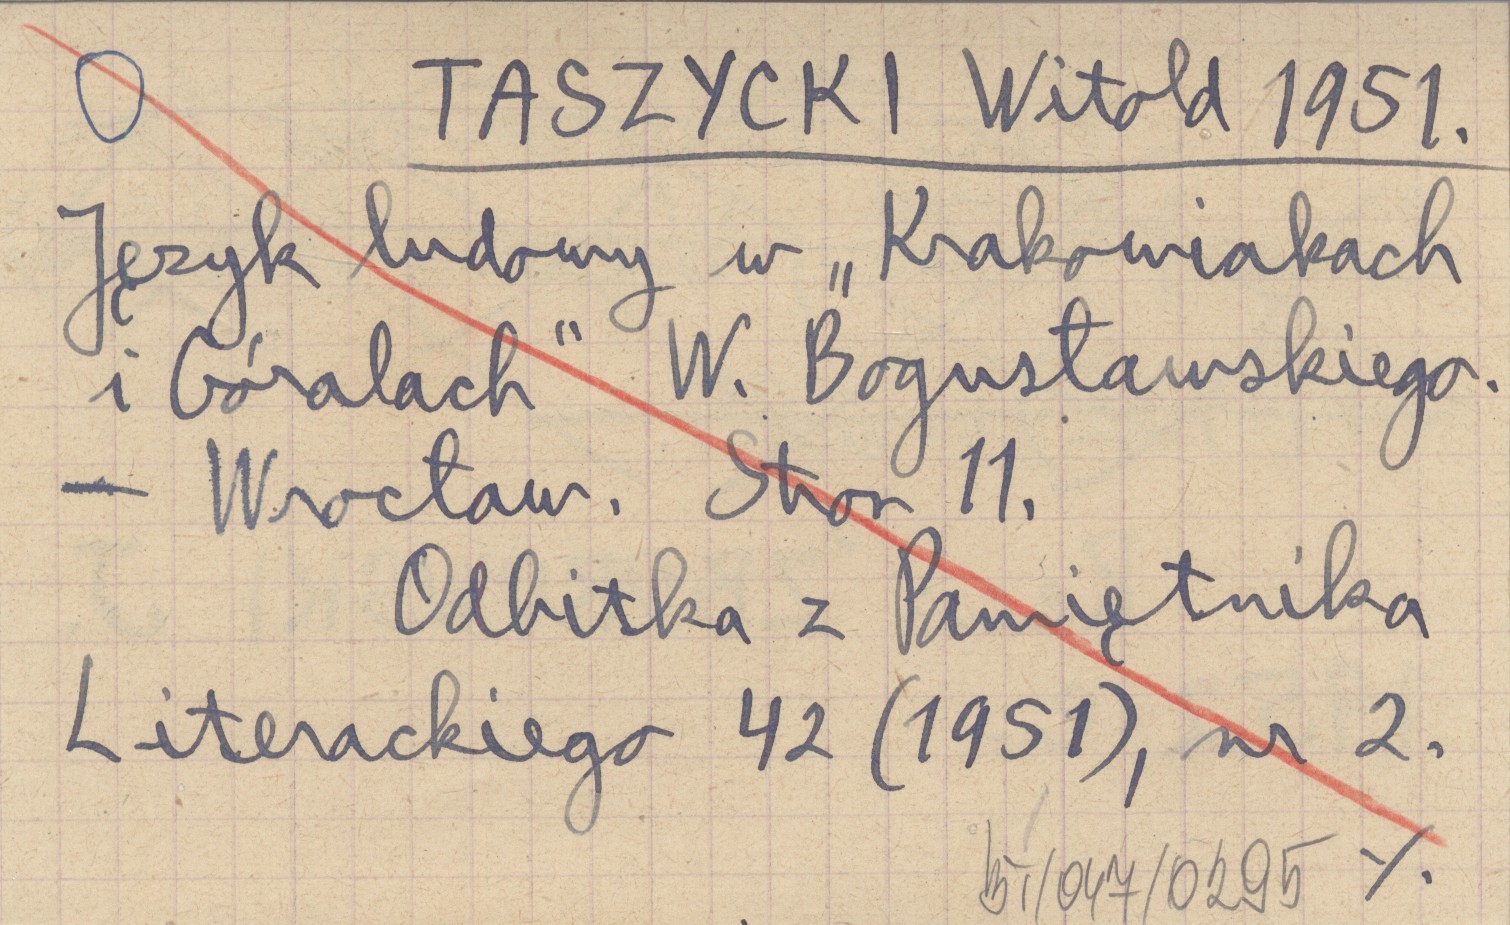 O TASZYCKI Witold 1951.
Język ludowy w „Krakowiakach
i Góralach" W. Bogusławskiego.
— Wrocław. Stron 11.
Odbitka z Pamiętnika
Literackiego 42 (1951), nr 2.
/047/0295 ⁒